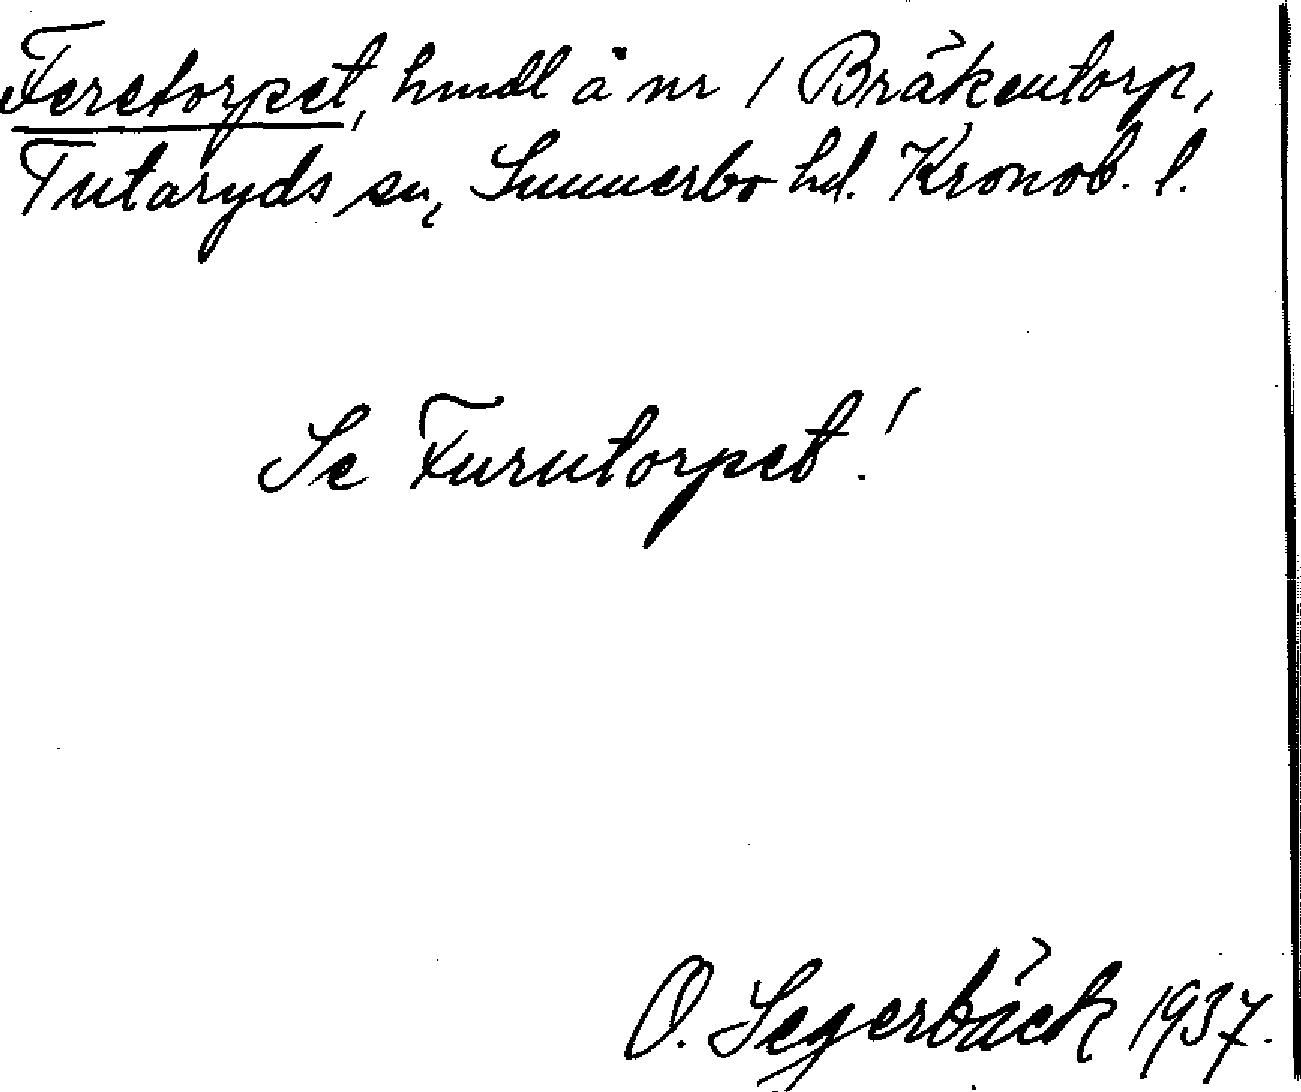 Feretorpet, hmdl å nr 1 Bräkentorp,
Tutaryds sn, Sunnerbo hd. Kronob. l.
Se Furutorpet!
O. Segerbäck 1937.